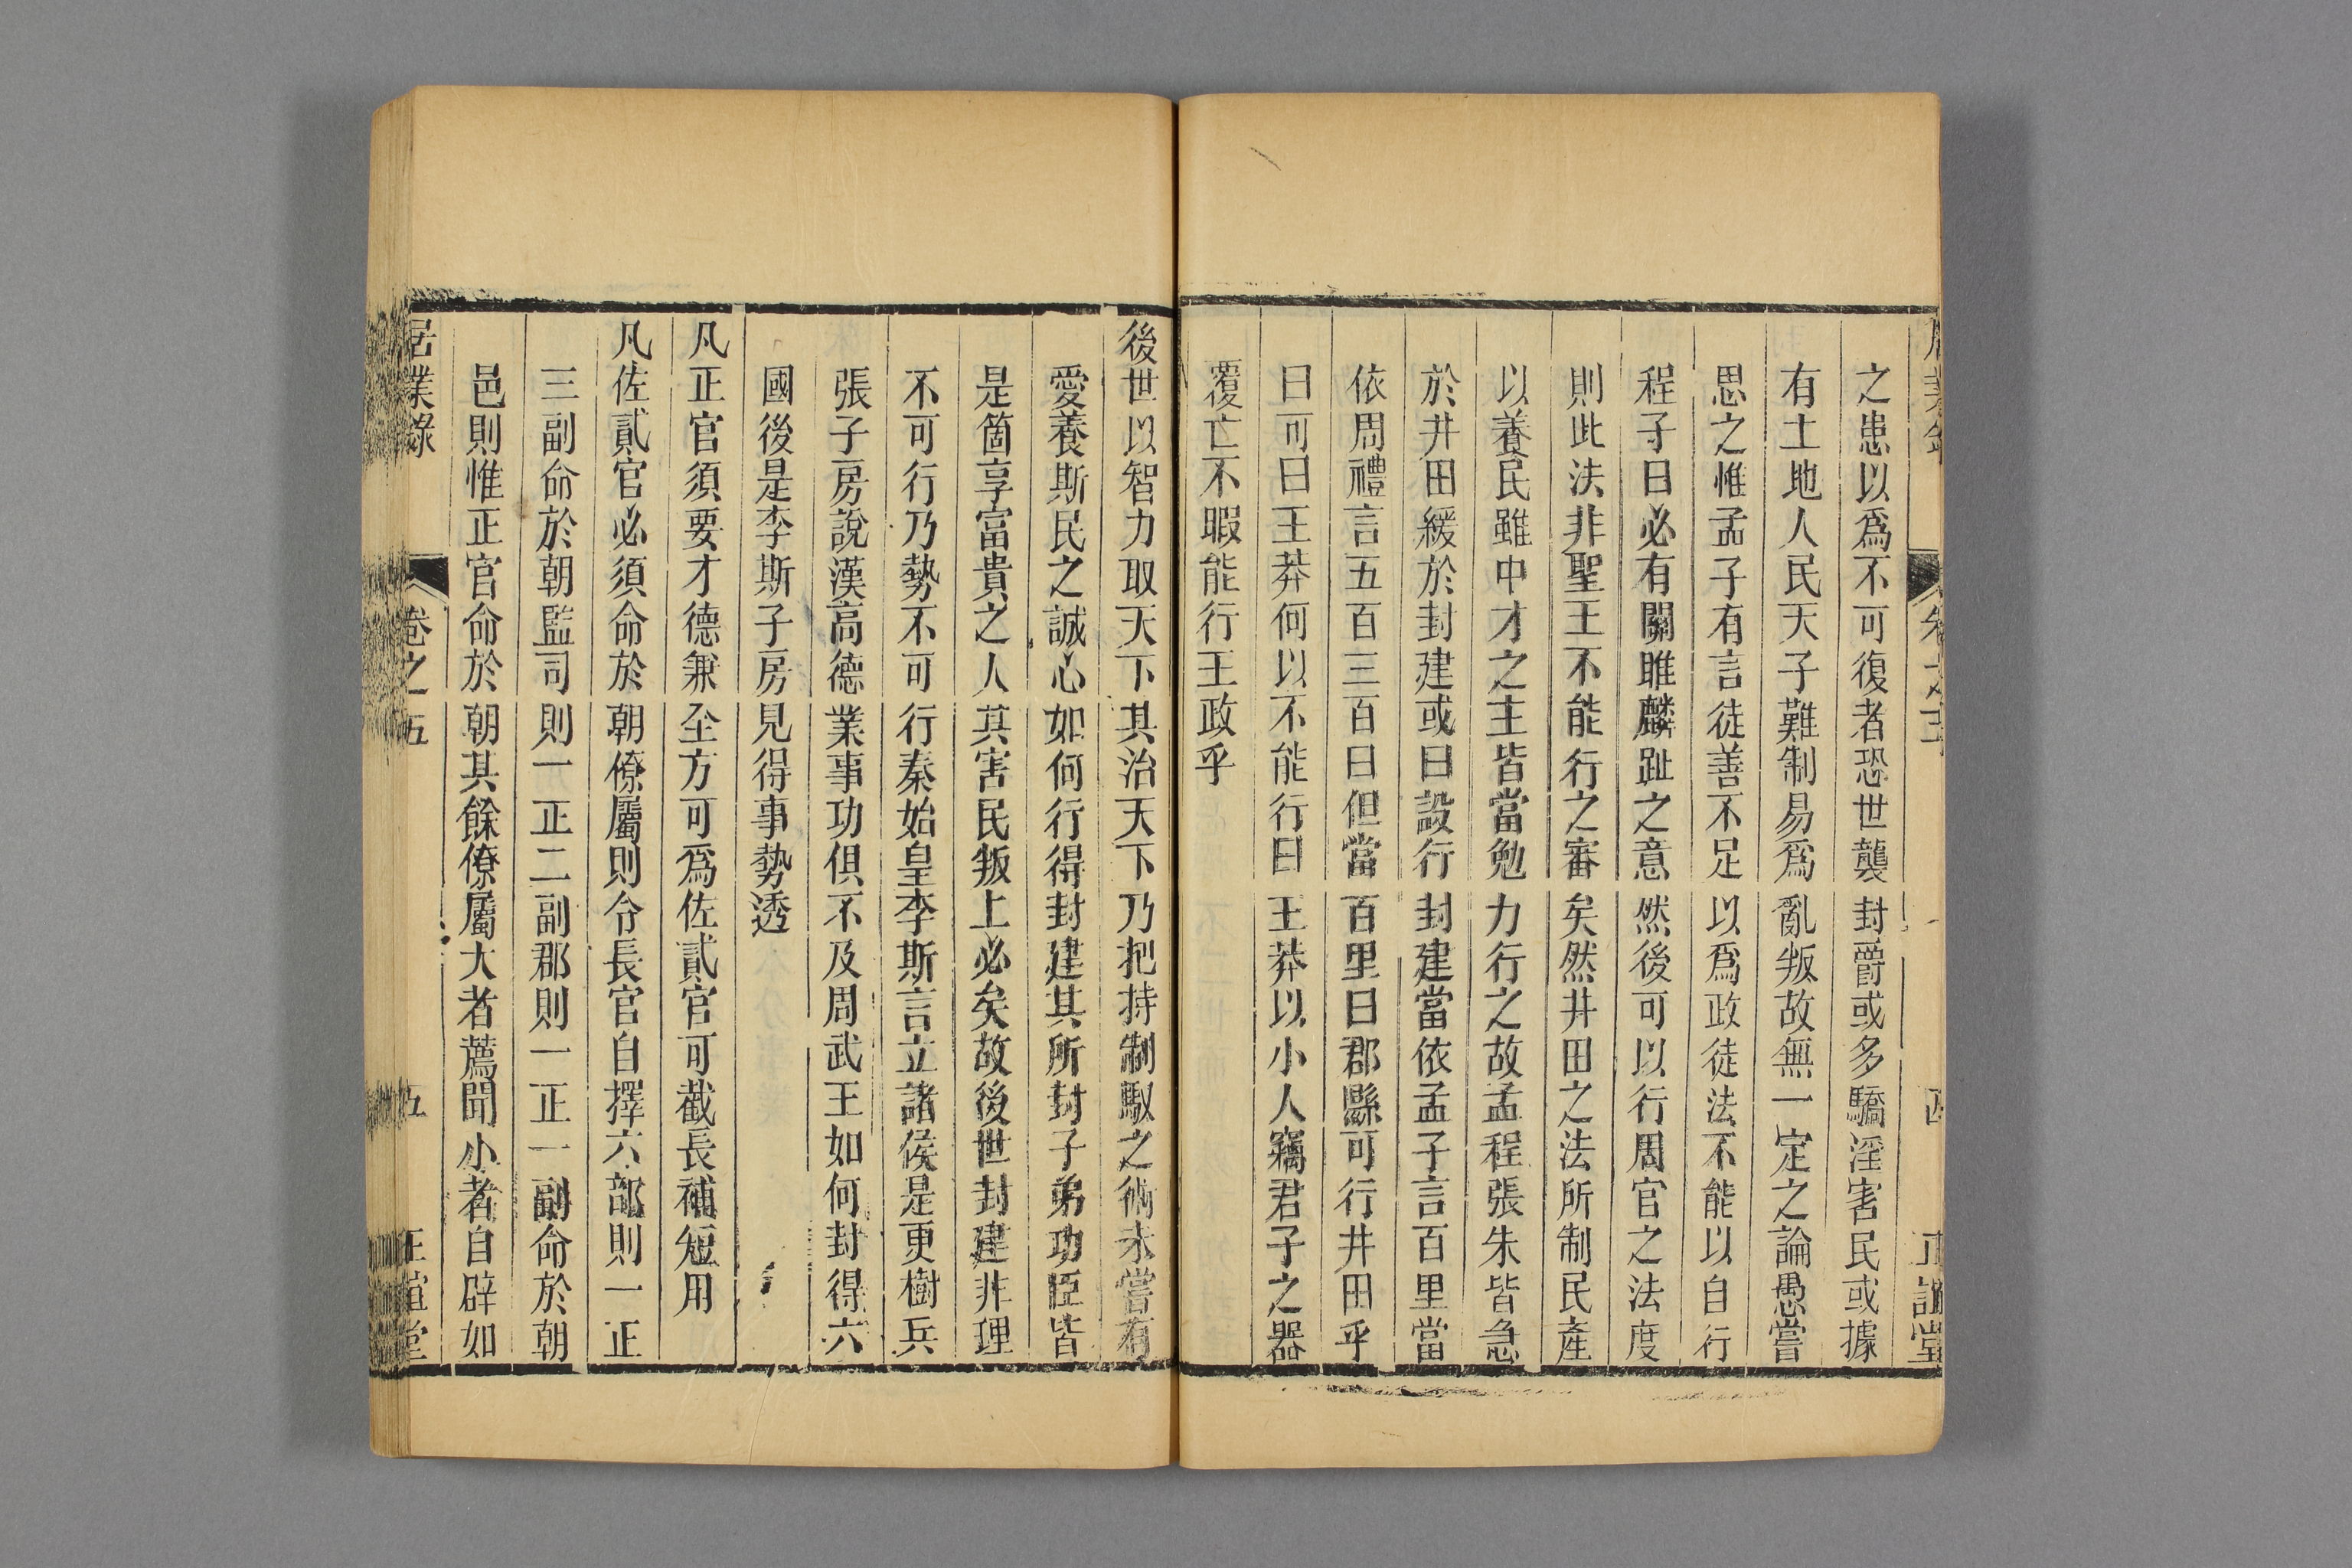 之患以爲不可復者恐世襲封爵或多驕淫害民或據
有土地人民天子難制易爲亂叛故無一定之論愚嘗
思之惟孟子有言徒善不足以爲政徒法不能以自行
程子曰必有關雎麟趾之意然後可以行周官之法度
則此法非聖王不能行之審矣然井田之法所制民產
以養民雖中才之主皆當勉力行之故孟程張朱皆急
於井田緩於封建或曰設行封建當依孟子言百里當
依周禮言五百三百曰但當百里曰郡縣可行井田乎
曰可曰王莽何以不能行曰王莽以小人竊君子之器
覆亡不暇能行王政乎
後世以智力取天下其治天下乃把持制馭之術未嘗有
愛養斯民之誠心如何行得封建其所封子弟功臣皆
是箇享富貴之人其害民叛上必矣故後世封建非理
不可行乃勢不可行秦始皇李斯言立諸侯是更樹兵
張子房說漢高德業事功俱不及周武王如何封得六
國後是李斯子房見得事勢透
凡正官須要才德兼全方可爲佐貳官可截長補短用
凡佐貳官必須命於朝僚屬則令長官自擇六部則一正
三副命於朝監司則一正二副郡則一正一副命於朝
邑則惟正官命於朝其餘僚屬大者薦聞小者自辟如
居業錄 卷之五 五 正誼堂